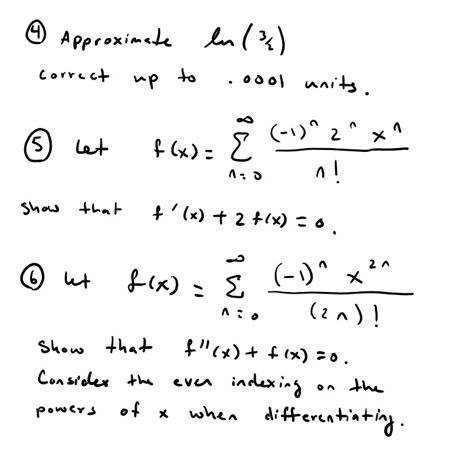 ④ Approximate ln(3/2)
correct up to .0001 units.
⑤ Let f(x) = ∞ Σ n=0 (-1)^n 2^n x^n / n!
Show that f'(x) + 2 f(x) = 0.
⑥ Let f(x) = ∞ Σ n=0 (-1)^n x^2n / (2n)!
Show that f''(x) + f(x) = 0.
Consider the even indexing on the
powers of x when differentiating.